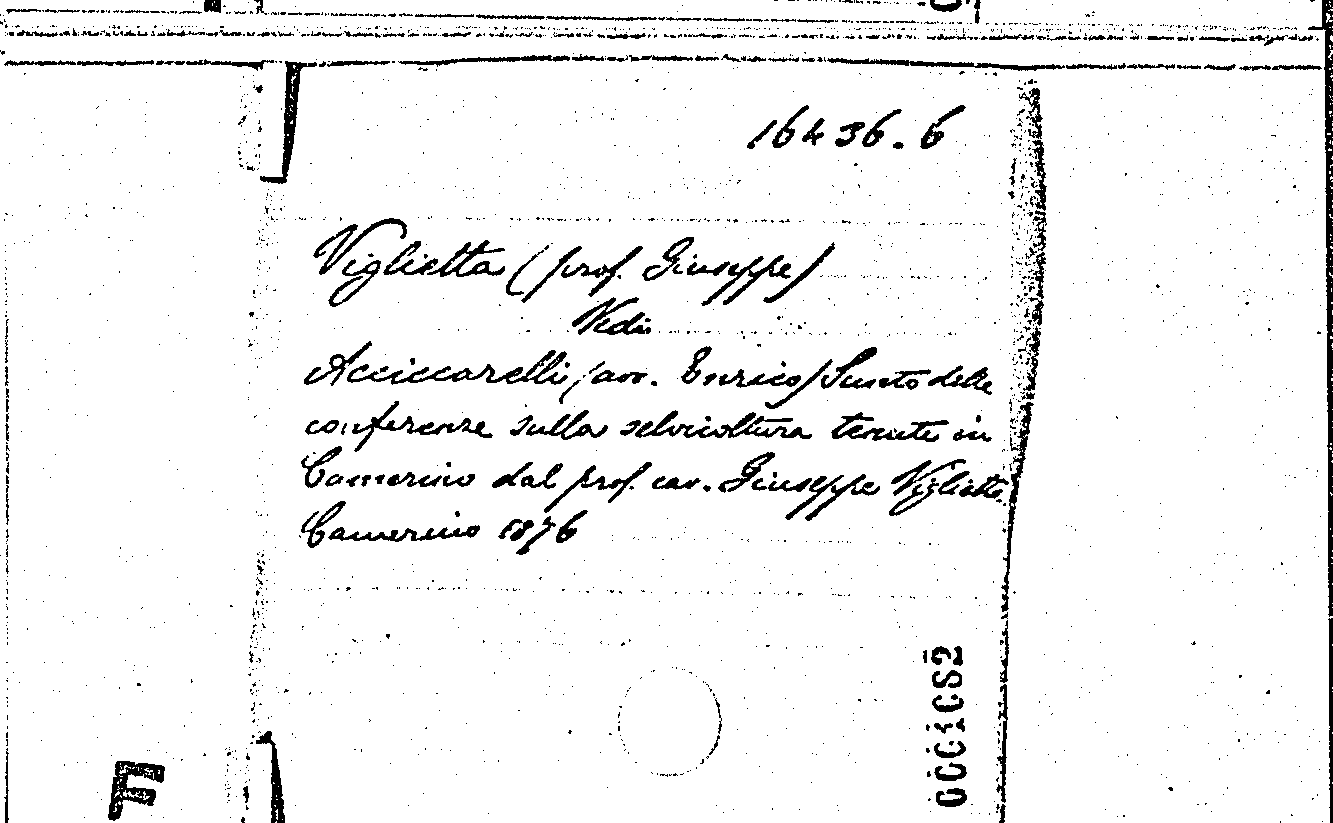 16436.6
Viglietta (prof. Giuseppe)
Vedi
Acciccarelli (avv. Enrico) Sunto delle
conferenze sulla selvicoltura tenute in
Camerino dal prof. cav. Giuseppe Viglietta
Camerino 1876
F